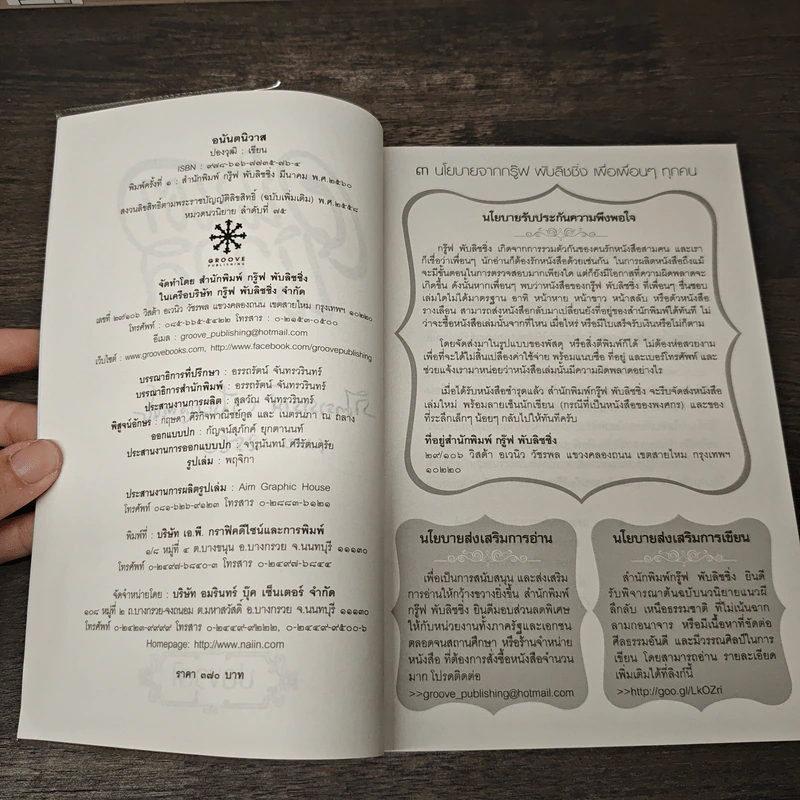 อนันตนิวาส
ปองวุฒิ : เขียน
ISBN : ๙๗๘-๖๑๖-๗๗๓๕-๗๖-๔
พิมพ์ครั้งที่ ๑ : สำนักพิมพ์ กรู๊ฟ พับลิชชิ่ง มีนาคม พ.ศ.๒๕๖๐
สงวนลิขสิทธิ์ตามพระราชบัญญัติลิขสิทธิ์ (ฉบับเพิ่มเติม) พ.ศ.๒๕๕๘
หมวดนวนิยาย ลำดับที่ ๗๕
GROOVE
PUBLISHING
จัดทำโดย สำนักพิมพ์ กรู๊ฟ พับลิชชิ่ง
ในเครือบริษัท กรู๊ฟ พับลิชชิ่ง จำกัด
เลขที่ ๒๙/๑๐๖ วิสต้า อเวนิว วัชรพล แขวงคลองถนน เขตสายไหม กรุงเทพฯ ๑๐๒๒๐
โทรศัพท์ : ๐๘๕-๖๖๕-๕๔๒๒ โทรสาร : ๐-๒๑๕๓-๐๕๐๐
อีเมล : groove_publishing@hotmail.com
เว็บไซต์ : www.groovebooks.com, http://www.facebook.com/groovepublishing
บรรณาธิการที่ปรึกษา : อรรถรัตน์ จันทรวรินทร์
บรรณาธิการสำนักพิมพ์ : อรรถรัตน์ จันทรวรินทร์
ประสานงานการผลิต : สุลวัณ จันทรวรินทร์
พิสูจน์อักษร : กฤษดา ศิริกิจพาณิชย์กูล และ เนตรนภา ณ ถลาง
ออกแบบปก : กัญจน์สุภัคค์ ยุกตานนท์
ประสานงานการออกแบบปก : จารุนันทน์ ศรีรัตนตรัย
รูปเล่ม : พฤจิกา
ประสานงานการผลิตรูปเล่ม : Aim Graphic House
โทรศัพท์ ๐๘๑-๖๒๖-๙๑๒๓ โทรสาร ๐-๒๘๘๓-๖๑๒๑
พิมพ์ที่ : บริษัท เอ.พี. กราฟิคดีไซน์และการพิมพ์
๑/๘ หมู่ที่ ๔ ต.บางขนุน อ.บางกรวย จ.นนทบุรี ๑๑๑๓๐
โทรศัพท์ ๐-๒๔๙๗-๖๘๔๐-๓ โทรสาร ๐-๒๔๙๗-๖๘๔๔
จัดจำหน่ายโดย : บริษัท อมรินทร์ บุ๊ค เซ็นเตอร์ จำกัด
๑๐๘ หมู่ที่ ๒ ถ.บางกรวย-จงถนอม ต.มหาสวัสดิ์ อ.บางกรวย จ.นนทบุรี ๑๑๑๓๐
โทรศัพท์ ๐-๒๔๒๓-๙๙๙๙ โทรสาร ๐-๒๔๔๙-๙๒๒๒, ๐-๒๔๔๙-๙๕๐๐-๖
Homepage: http://www.naiin.com
ราคา ๓๗๐ บาท
๓ นโยบายจากกรู๊ฟ พับลิชชิ่ง เพื่อเพื่อนๆ ทุกคน
นโยบายรับประกันความพึงพอใจ
กรู๊ฟ พับลิชชิ่ง เกิดจากการรวมตัวกันของคนรักหนังสือสามคน และเรา
ก็เชื่อว่าเพื่อนๆ นักอ่านก็ต้องรักหนังสือด้วยเช่นกัน ในการผลิตหนังสือถึงแม้
จะมีขั้นตอนในการตรวจสอบมากเพียงใด แต่ก็ยังมีโอกาสที่ความผิดพลาดจะ
เกิดขึ้น ดังนั้นหากเพื่อนๆ พบว่าหนังสือของกรู๊ฟ พับลิชชิ่ง ที่เพื่อนๆ ชื่นชอบ
เล่มใดไม่ได้มาตรฐาน อาทิ หน้าหาย หน้าขาว หน้าสลับ หรือตัวหนังสือ
รางเลือน สามารถส่งหนังสือกลับมาเปลี่ยนยังที่อยู่ของสำนักพิมพ์ได้ทันที ไม่
ว่าจะซื้อหนังสือเล่มนั้นจากที่ไหน เมื่อไหร่ หรือมีใบเสร็จรับเงินหรือไม่ก็ตาม
โดยจัดส่งมาในรูปแบบของพัสดุ หรือสิ่งตีพิมพ์ก็ได้ ไม่ต้องห่อสวยงาม
เพื่อที่จะได้ไม่สิ้นเปลืองค่าใช้จ่าย พร้อมแนบชื่อ ที่อยู่ และเบอร์โทรศัพท์ และ
ช่วยแจ้งเรามาหน่อยว่าหนังสือเล่มนั้นมีความผิดพลาดอย่างไร
เมื่อได้รับหนังสือชำรุดแล้ว สำนักพิมพ์กรู๊ฟ พับลิชชิ่ง จะรีบจัดส่งหนังสือ
เล่มใหม่ พร้อมลายเซ็นนักเขียน (กรณีที่เป็นหนังสือของพงศกร) และของ
ที่ระลึกเล็กๆ น้อยๆ กลับไปให้ทันทีครับ
ที่อยู่สำนักพิมพ์กรู๊ฟ พับลิชชิ่ง
๒๙/๑๐๖ วิสต้า อเวนิว วัชรพล แขวงคลองถนน เขตสายไหม กรุงเทพฯ
๑๐๒๒๐
นโยบายส่งเสริมการอ่าน
เพื่อเป็นการสนับสนุน และส่งเสริม
การอ่านให้กว้างขวางยิ่งขึ้น สำนักพิมพ์
กรู๊ฟ พับลิชชิ่ง ยินดีมอบส่วนลดพิเศษ
ให้กับหน่วยงานทั้งภาครัฐและเอกชน
ตลอดจนสถานศึกษา หรือร้านจำหน่าย
หนังสือ ที่ต้องการสั่งซื้อหนังสือจำนวน
มาก โปรดติดต่อ
>>groove_publishing@hotmail.com
นโยบายส่งเสริมการเขียน
สำนักพิมพ์กรู๊ฟ พับลิชชิ่ง ยินดี
รับพิจารณาต้นฉบับนวนิยายแนวผี
ลึกลับ เหนือธรรมชาติ ที่ไม่เน้นฉาก
ลามกอนาจาร หรือมีเนื้อหาที่ขัดต่อ
ศีลธรรมอันดี และมีวรรณศิลป์ในการ
เขียน โดยสามารถอ่าน รายละเอียด
เพิ่มเติมได้ที่ลิงก์นี้
>>http://goo.gl/LkOZri